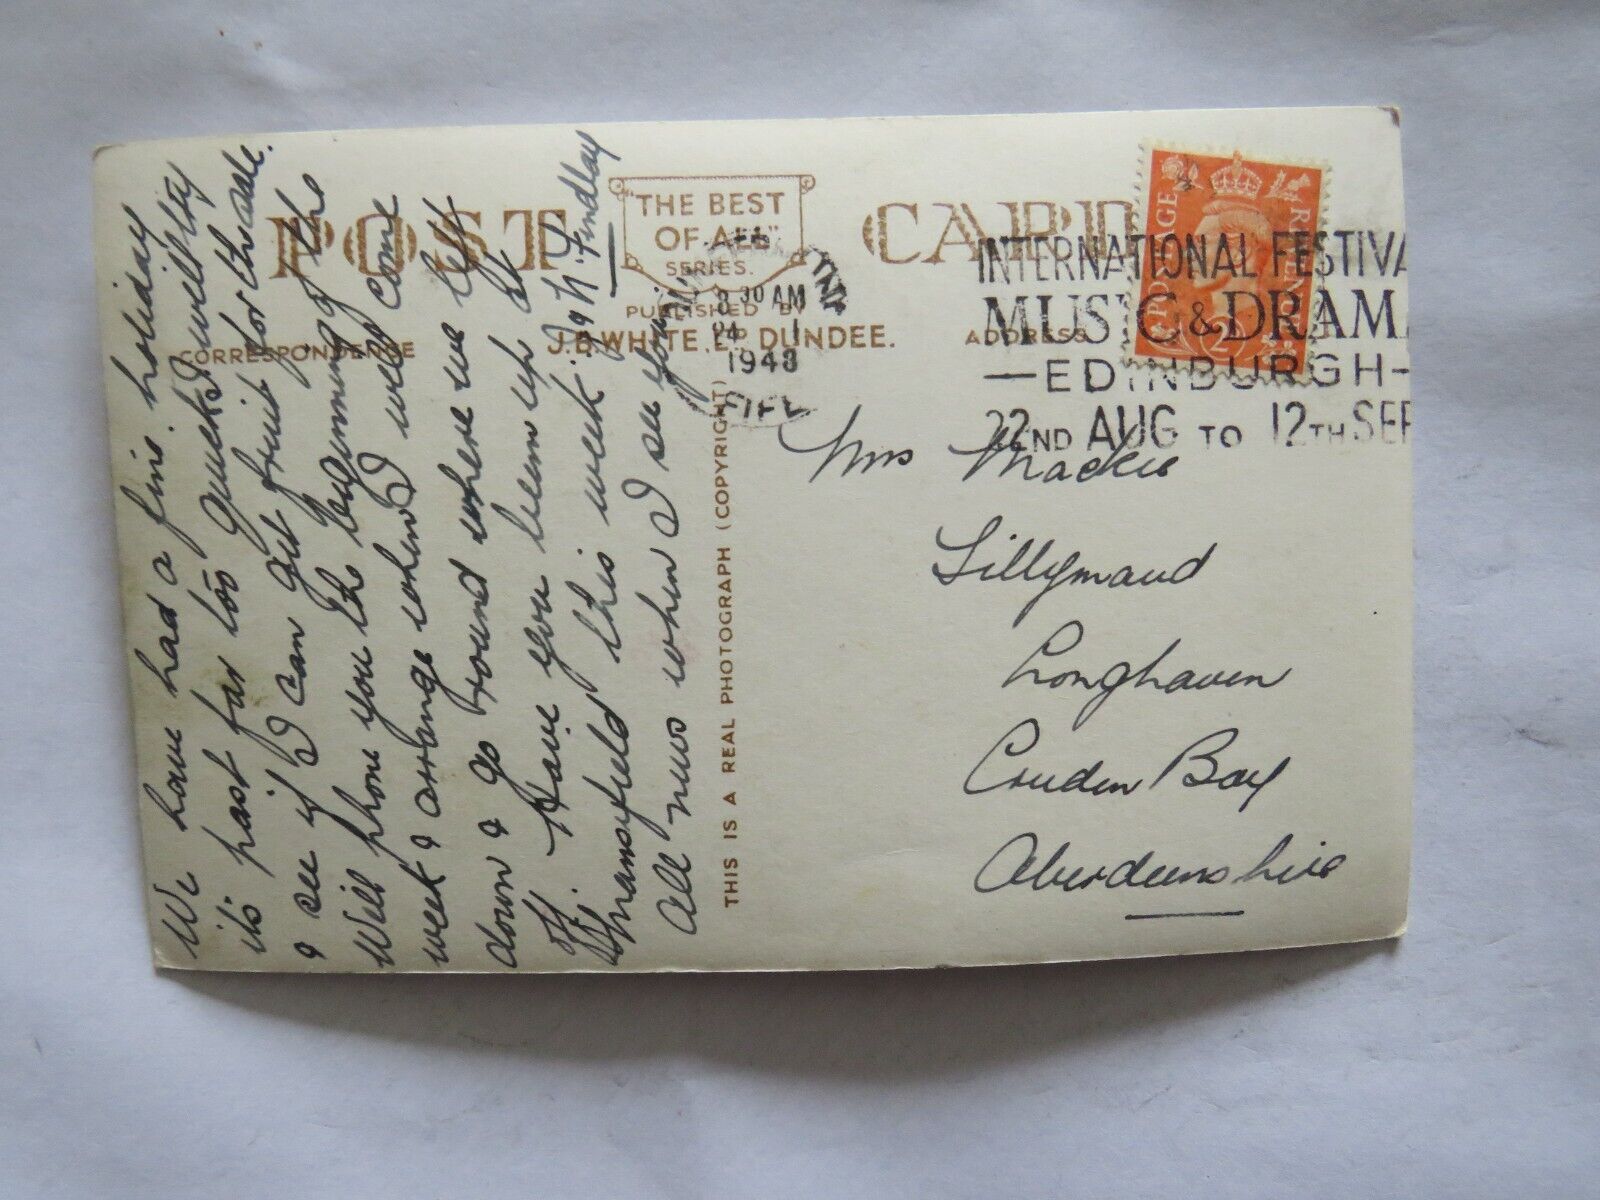 POST CARD
"THE BEST
OF ALL"
SERIES.
PUBLISHED BY
J.B. WHITE LTD DUNDEE.
CORRESPONDENCE
ADDRESS
THIS IS A REAL PHOTOGRAPH (COPYRIGHT)
8 30 AM
24
1948
FIFE
INTERNATIONAL FESTIVA
MUSIC & DRAMA
— EDINBURGH —
22ND AUG TO 12TH SEP
POSTAGE REVENUE
We have had a fine holiday
its past far too quick I will try
& see if I can get fruit for the sale.
Will phone you the beginning of the
week & arrange when I will come
down & go round where we left
off. Have you been up at
Mansfield this week.
All news when I see you.
N. Findlay
Mrs Mackie
Lillymaud
Longhaven
Cruden Bay
Aberdeenshire